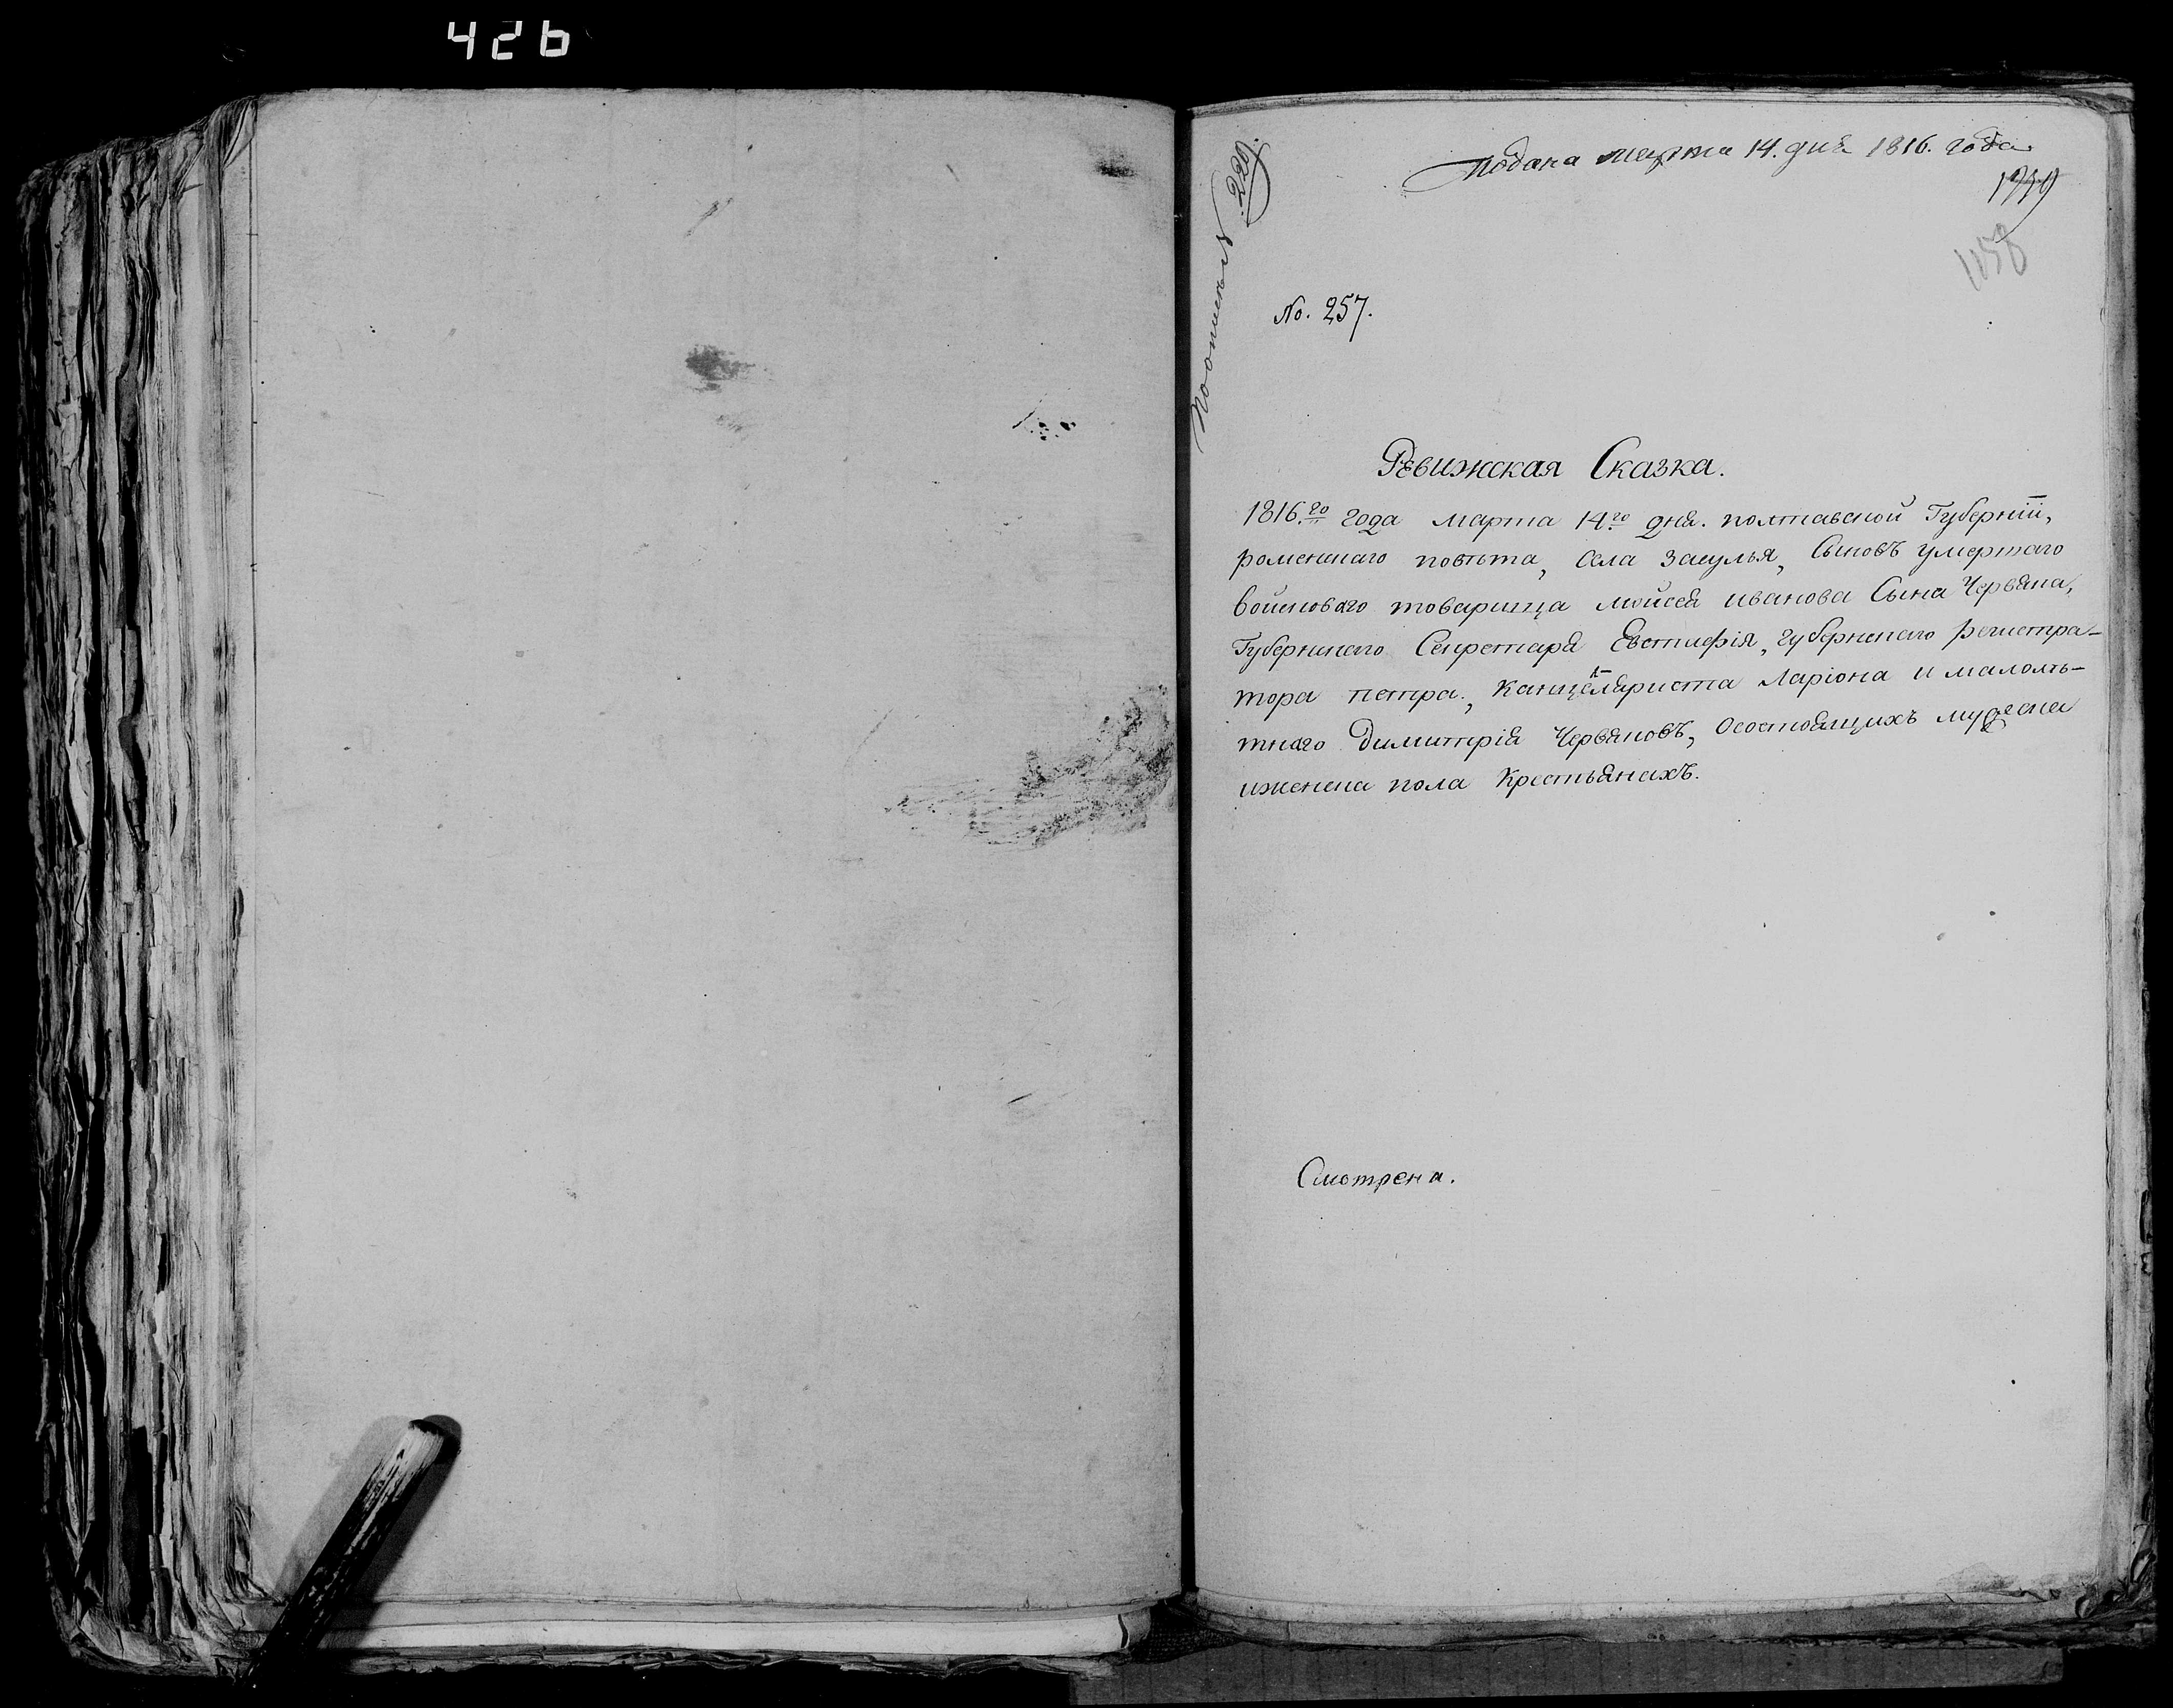 426
Подана марта 14. дня 1816. года
1158
No. 257.
Ревижская Сказка.
1816.го года марта 14го дня. полтавской Губерніи,
роменскаго повѣта, села засулья, Сыновъ умершаго
войсковаго товарища мойсея иванова Сына Червяка,
Губернскаго Секретаря Евстафія, губернскаго регистра-
тора петра, Канцеляриста Ларіона и малолѣ-
тнаго Димитрія Червяковъ, осостоящихъ мужеска
иженска пола Крестьянахъ.
Смотрена.